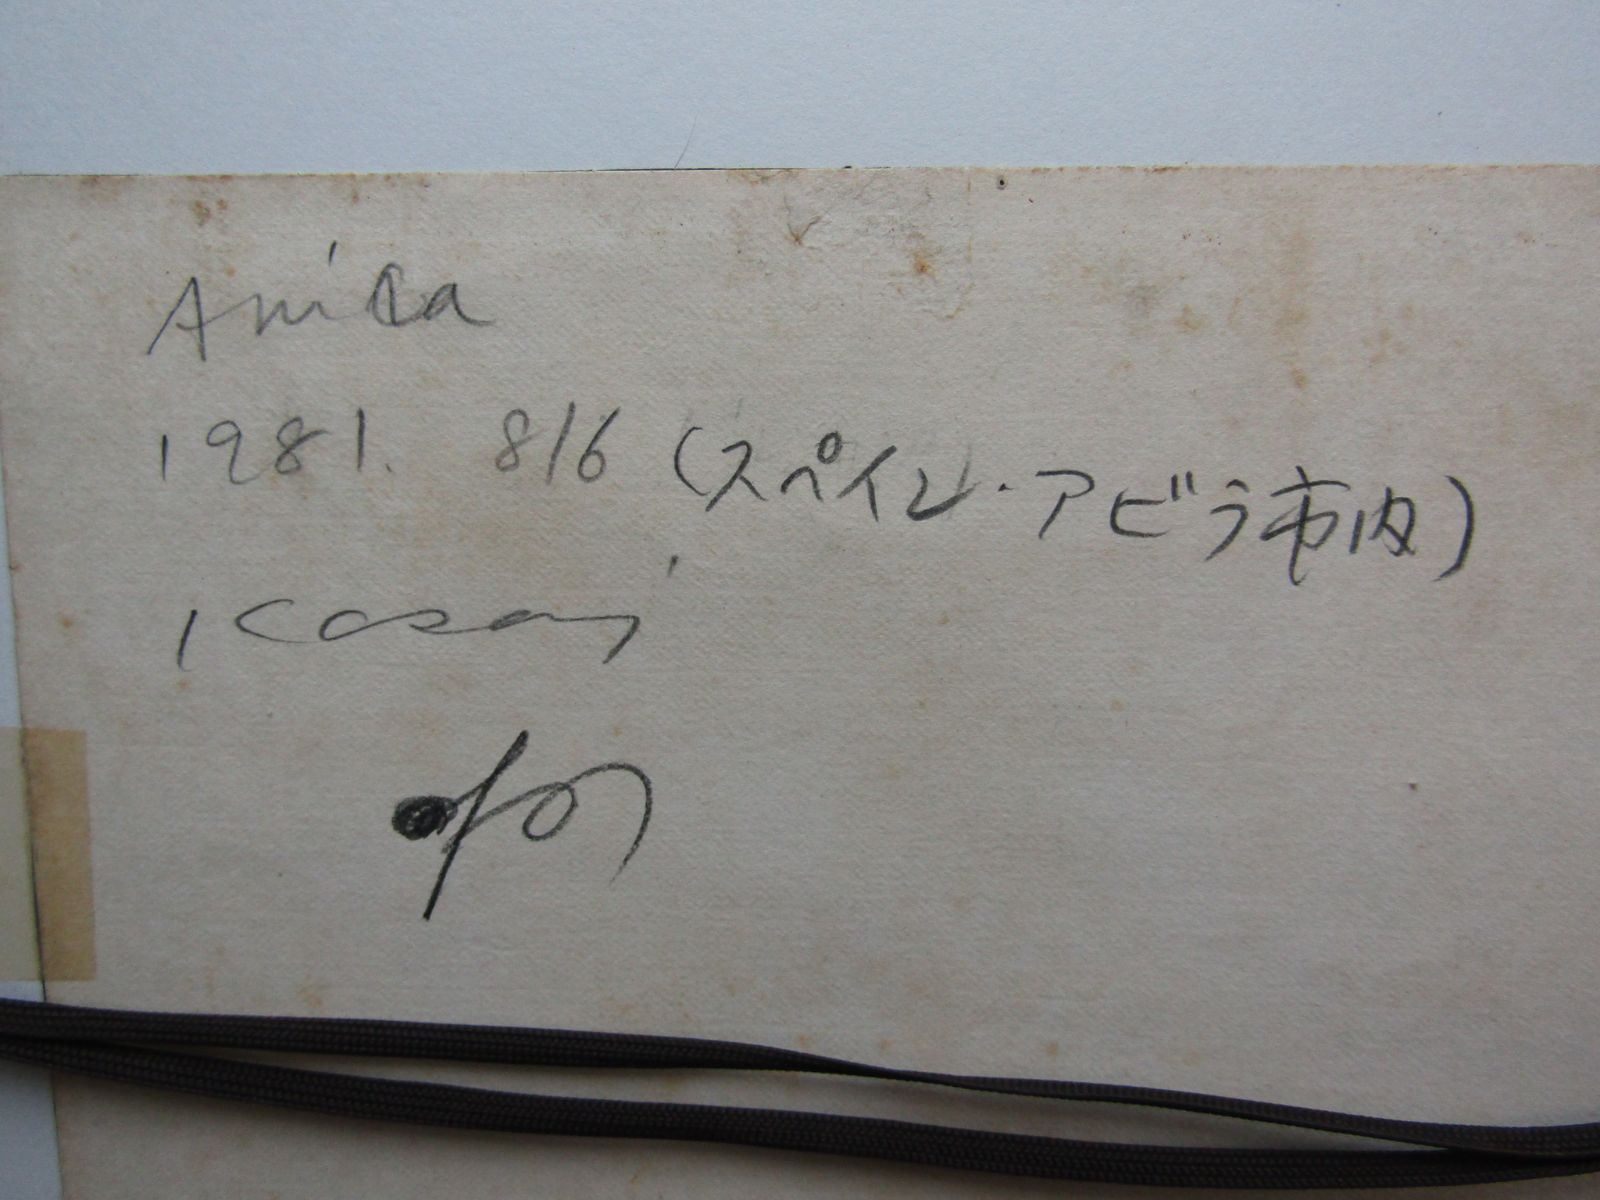 Avila
1981. 8/6 (スペイン・アビラ市内)
Kasai